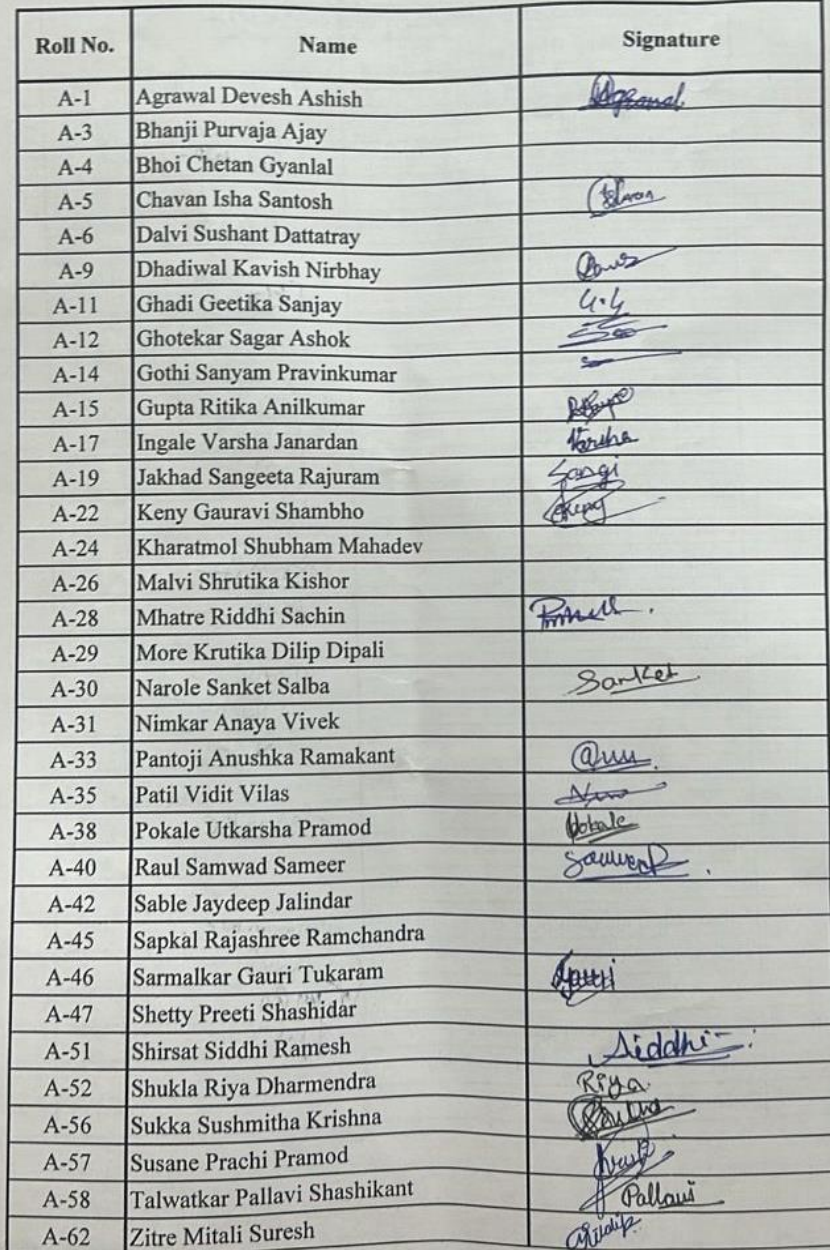 Roll No. Name Signature
A-1 Agrawal Devesh Ashish Agrawal
A-3 Bhanji Purvaja Ajay
A-4 Bhoi Chetan Gyanlal
A-5 Chavan Isha Santosh
A-6 Dalvi Sushant Dattatray
A-9 Dhadiwal Kavish Nirbhay
A-11 Ghadi Geetika Sanjay G.G
A-12 Ghotekar Sagar Ashok
A-14 Gothi Sanyam Pravinkumar
A-15 Gupta Ritika Anilkumar
A-17 Ingale Varsha Janardan Varsha
A-19 Jakhad Sangeeta Rajuram Sangi
A-22 Keny Gauravi Shambho
A-24 Kharatmol Shubham Mahadev
A-26 Malvi Shrutika Kishor
A-28 Mhatre Riddhi Sachin
A-29 More Krutika Dilip Dipali
A-30 Narole Sanket Salba Sanket
A-31 Nimkar Anaya Vivek
A-33 Pantoji Anushka Ramakant
A-35 Patil Vidit Vilas
A-38 Pokale Utkarsha Pramod Pokale
A-40 Raul Samwad Sameer
A-42 Sable Jaydeep Jalindar
A-45 Sapkal Rajashree Ramchandra
A-46 Sarmalkar Gauri Tukaram Gauri
A-47 Shetty Preeti Shashidar
A-51 Shirsat Siddhi Ramesh Siddhi
A-52 Shukla Riya Dharmendra Riya
A-56 Sukka Sushmitha Krishna
A-57 Susane Prachi Pramod
A-58 Talwatkar Pallavi Shashikant Pallavi
A-62 Zitre Mitali Suresh